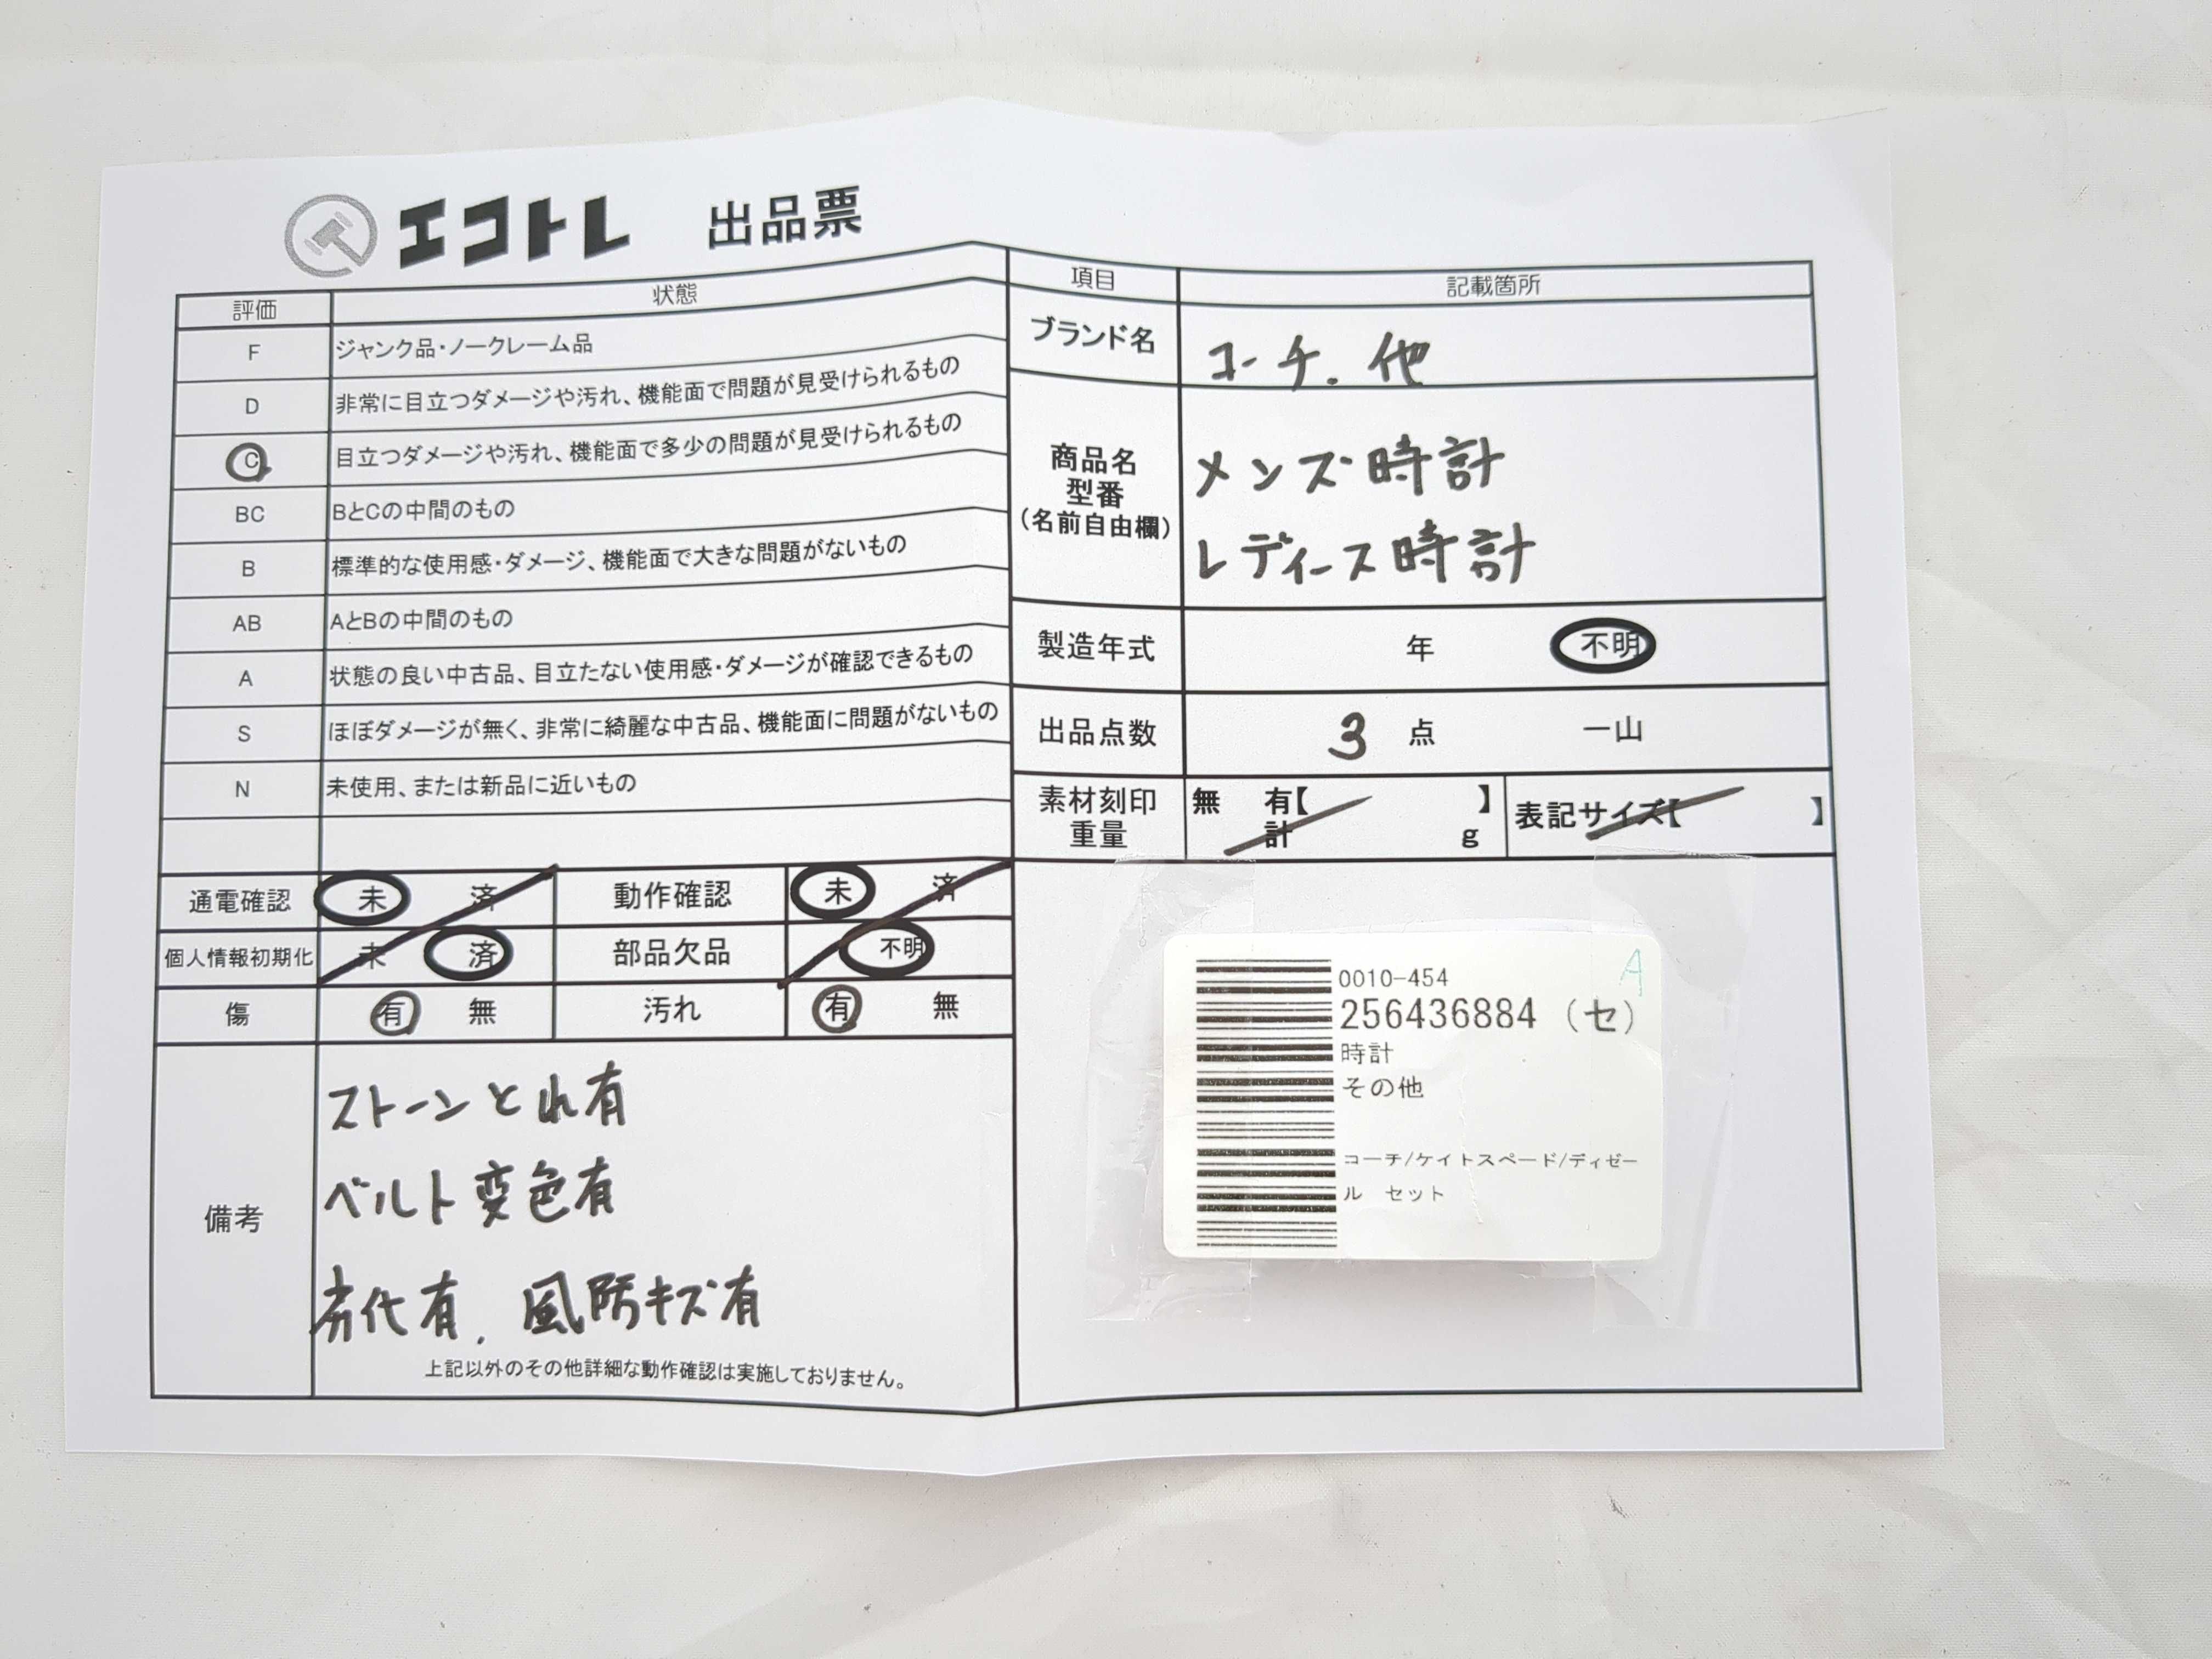 エコトレ 出品票
評価 状態
F ジャンク品・ノークレーム品
D 非常に目立つダメージや汚れ、機能面で問題が見受けられるもの
C 目立つダメージや汚れ、機能面で多少の問題が見受けられるもの
BC BとCの中間のもの
B 標準的な使用感・ダメージ、機能面で大きな問題がないもの
AB AとBの中間のもの
A 状態の良い中古品、目立たない使用感・ダメージが確認できるもの
S ほぼダメージが無く、非常に綺麗な中古品、機能面に問題がないもの
N 未使用、または新品に近いもの
通電確認 未 済 動作確認 未 済
個人情報初期化 未 済 部品欠品 不明
傷 有 無 汚れ 有 無
備考
ストーンとれ有
ベルト変色有
劣化有、風防キズ有
上記以外のその他詳細な動作確認は実施しておりません。
項目 記載箇所
ブランド名 コーチ、他
商品名
型番
(名前自由欄)
メンズ時計
レディース時計
製造年式 年 不明
出品点数 3 点 一山
素材刻印
重量
無 有【 】
計 g
表記サイズ【 】
A
0010-454
256436884 (セ)
時計
その他
コーチ/ケイトスペード/ディゼー
ル セット